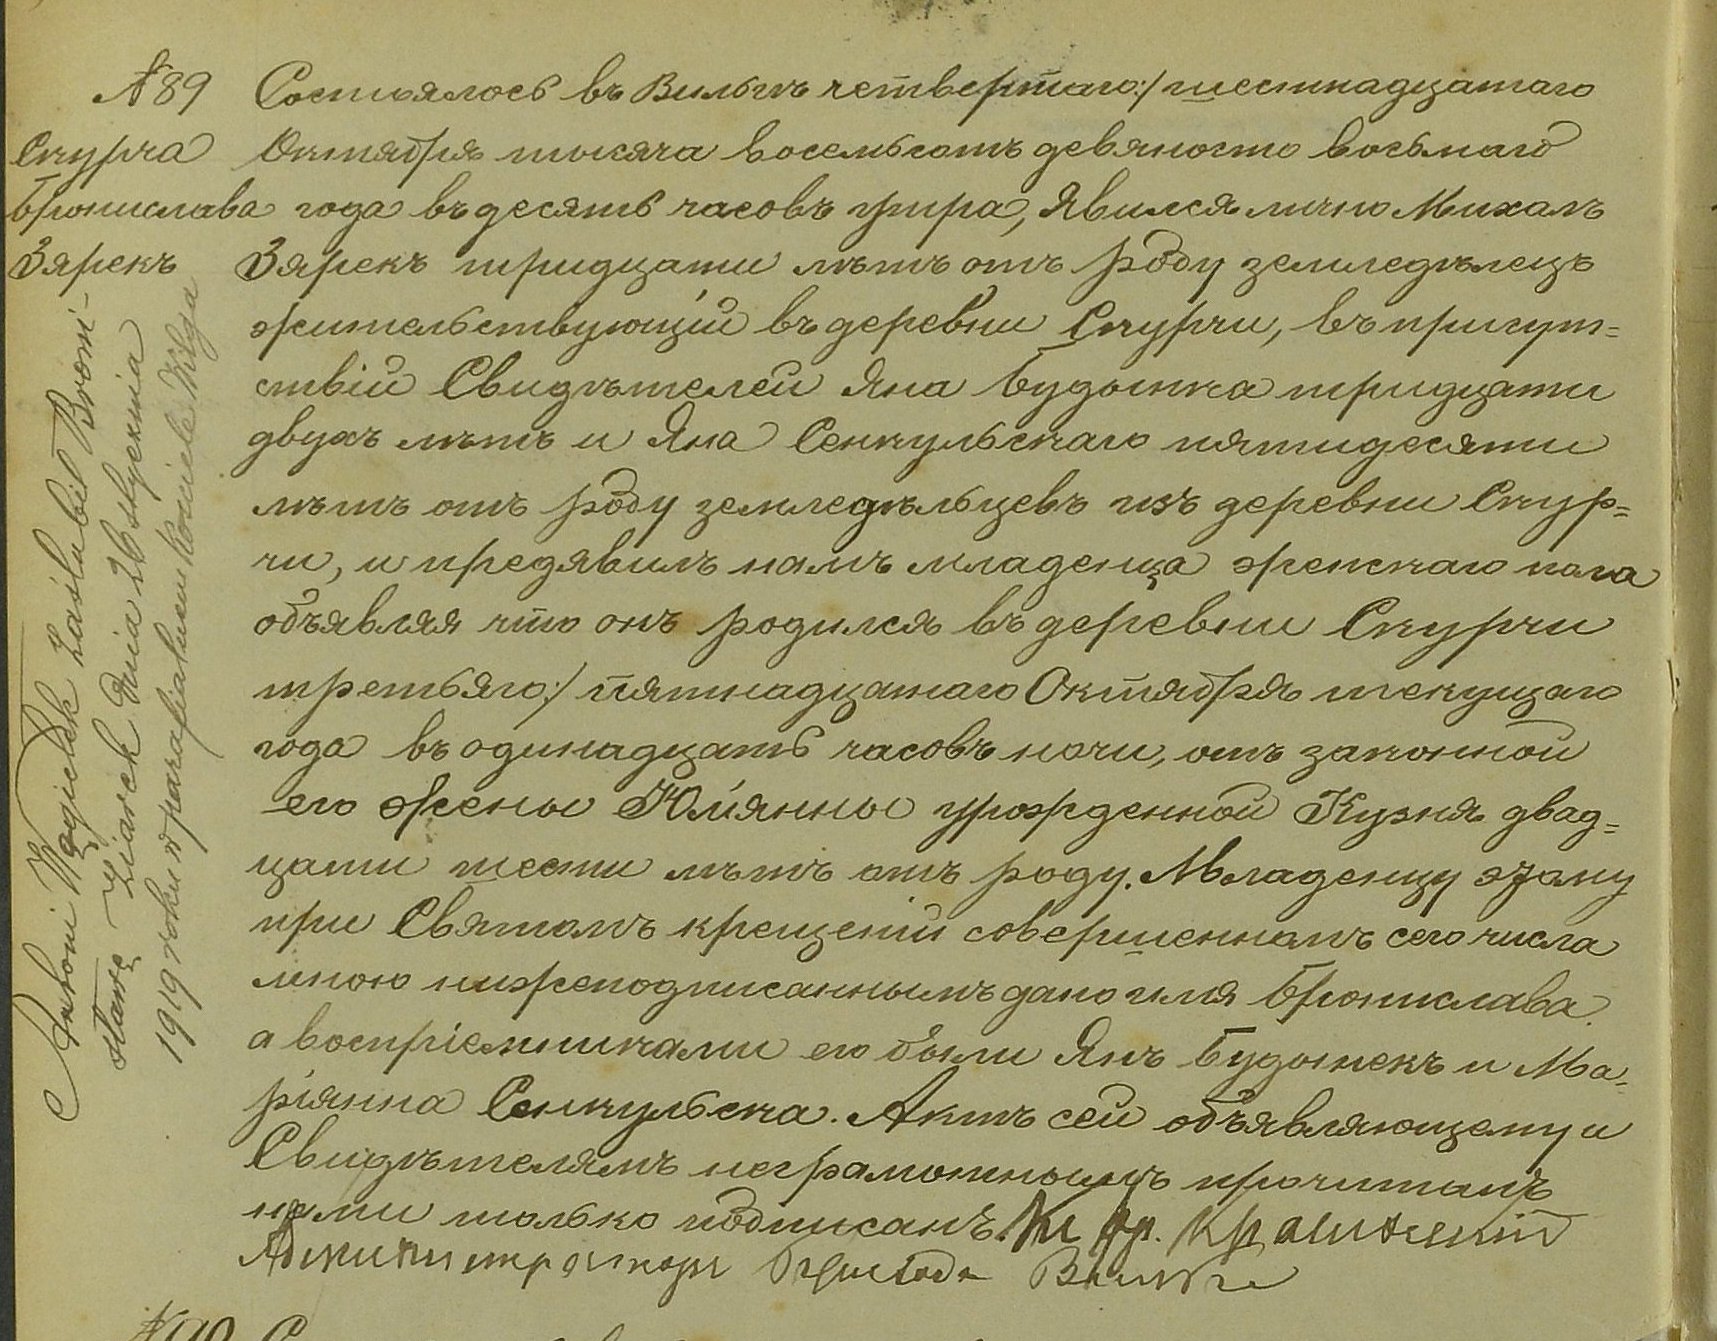 № 89
Скурча
Бронислава
Зярекъ
Состоялось въ Вильгѣ четвертаго:/шестнадцатаго
Октября тысяча восемьсотъ девяносто восьмаго
года въ десять часовъ утра, Явился лично Михалъ
Зярекъ тридцати лѣтъ отъ роду земледѣлецъ
жительствующій въ деревни Скурчи, въ присут=
ствіи Свидѣтелей Яна Будынка тридцати
двухъ лѣтъ и Яна Сенкульскаго пятидесяти
лѣтъ отъ роду земледѣльцевъ изъ деревни Скур=
чи, и предявилъ намъ младенца женскаго пола
объявляя что онъ родился въ деревни Скурчи
третьяго:/ пятнадцатаго Октября текущаго
года въ одинадцать часовъ ночи, отъ законной
его жены Юліянны урожденной Кузня двад=
цати шести лѣтъ отъ роду. Младенцу этому
при Святомъ крещеніи совершенномъ сего числа
мною нижеподписаннымъ дано имя Бронислава.
а воспріемниками его были Янъ Будынекъ и Ма-
ріянна Сенкульска. Актъ сей объявляющему и
Свидѣтелямъ неграмотнымъ прочитанъ
нами только подписанъ.
Администраторъ Прихода Вильга
Antoni Wągielek zaślubił Broni-
sławę Ziarek dnia 26 stycznia
1919 roku w parafialnem kościele Wilga